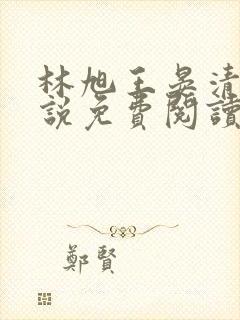 林旭王晏清
說免費閱讀
鄭賢